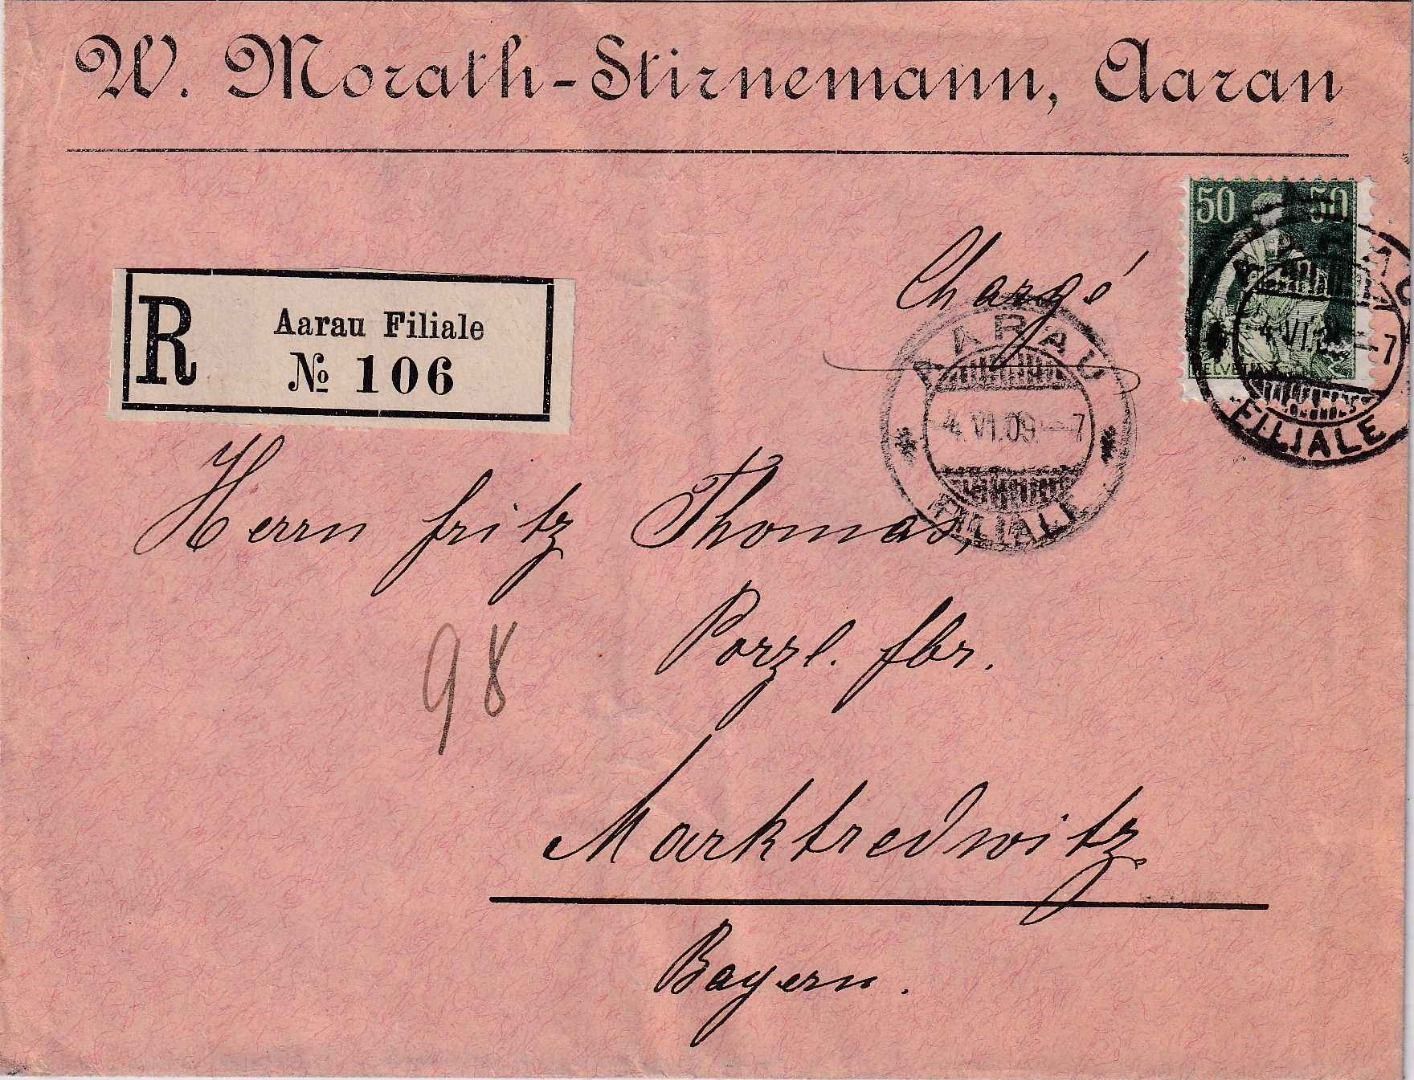 W. Morath-Stirnemann, Aarau
50 50
HELVETIA
Chargé
R Aarau Filiale
№ 106
AARAU
4.VI.09.-7
FILIALE
AARAU
4.VI.09.-7
FILIALE
Herrn Fritz Thomas,
Porzl. fbr.
98
Marktredwitz
Bayern.